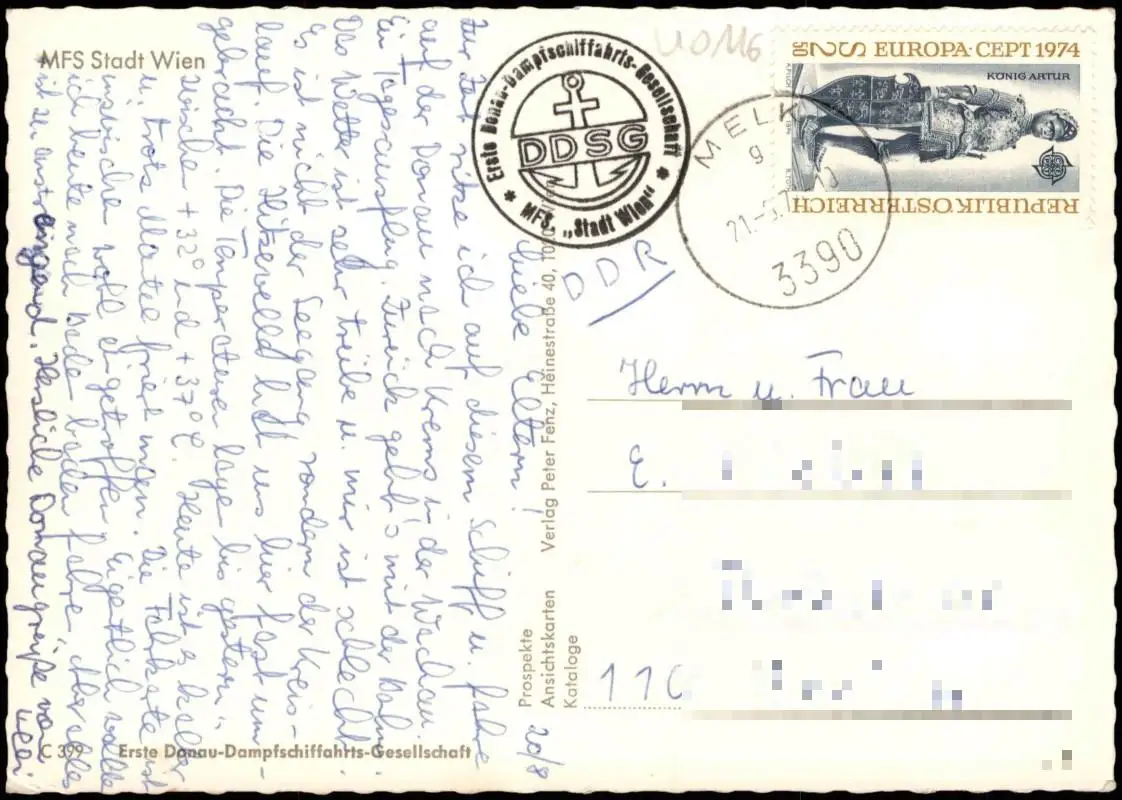 MFS Stadt Wien
Erste Donau-Dampfschiffahrts-Gesellschaft
DDSG
MFS. „Stadt Wien"
U0116
S 2 50 EUROPA·CEPT 1974
KÖNIG ARTUR
REPUBLIK ÖSTERREICH
MELK
9
21.-8.
3390
DDR
20/8
Liebe Eltern!
Zur Zeit sitze ich auf diesem Schiff u. fahre
auf der Donau nach Krems in der Wachau.
Ein Tagesausflug. Zurück geht's mit der Bahn.
Das Wetter ist sehr trübe u. mir ist schlecht.
Es ist nicht der Seegang sondern der Kreis-
lauf. Die Hitzewelle hat uns hier fast um-
gebracht. Die Temperaturen lagen bis gestern
zwischen +32° und +37°C. Heute ist es kälter
u. trotz Mantel friert man. Die Karte ist
inzwischen wohl eingetroffen. Eigentlich wollte
ich heute nach Baden fahren, aber alles
ist zu anstrengend. Herzliche Donaugrüße von
Ulli
Herrn u. Frau
E.
110
Prospekte
Ansichtskarten
Kataloge
Verlag Peter Fenz, Heinestraße 40, 1020
C 399 Erste Donau-Dampfschiffahrts-Gesellschaft